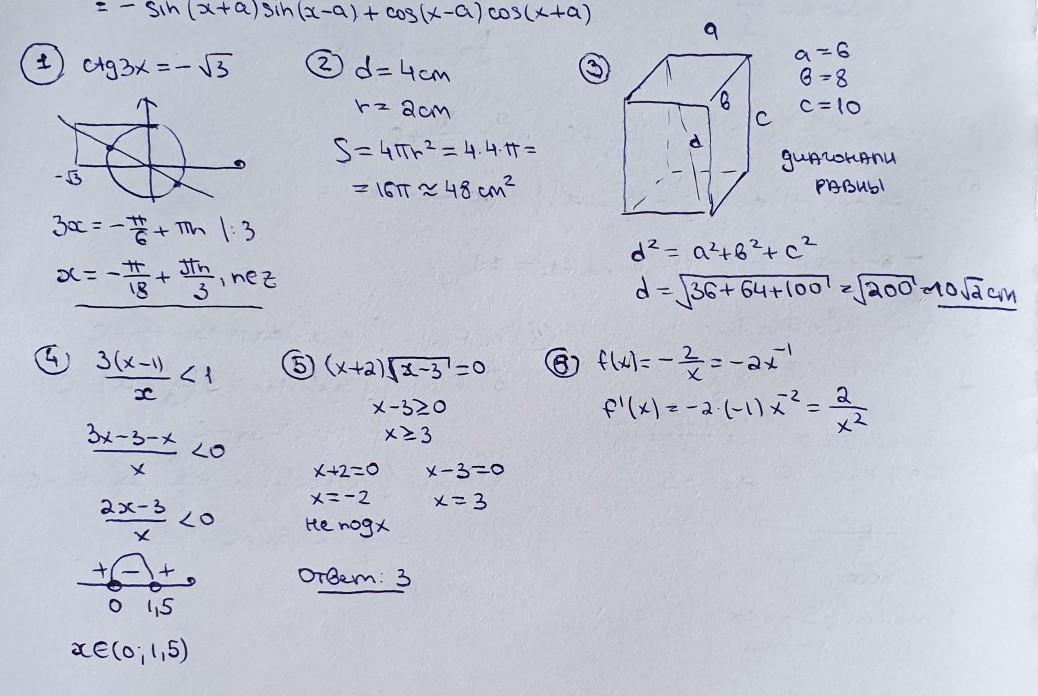 = - sin(x+a)sin(x-a) + cos(x-a)cos(x+a)
① ctg3x = -√3
-√3
3x = -π/6 + πn |:3
x = -π/18 + πn/3, n∈z
② d = 4cm
r = 2cm
S = 4πr² = 4·4·π =
= 16π ≈ 48 cm²
③
a
в
c
d
a = 6
в = 8
c = 10
диагонали
равны
d² = a²+в²+c²
d = √36+64+100 = √200 = 10√2 cm
④ 3(x-1)/x < 1
3x-3-x/x < 0
2x-3/x < 0
+ - +
0 1,5
x∈(0;1,5)
⑤ (x+2)√x-3 = 0
x-3≥0
x≥3
x+2=0 x-3=0
x=-2 x=3
не подх
Ответ: 3
⑥ f(x) = -2/x = -2x⁻¹
f'(x) = -2·(-1)x⁻² = 2/x²